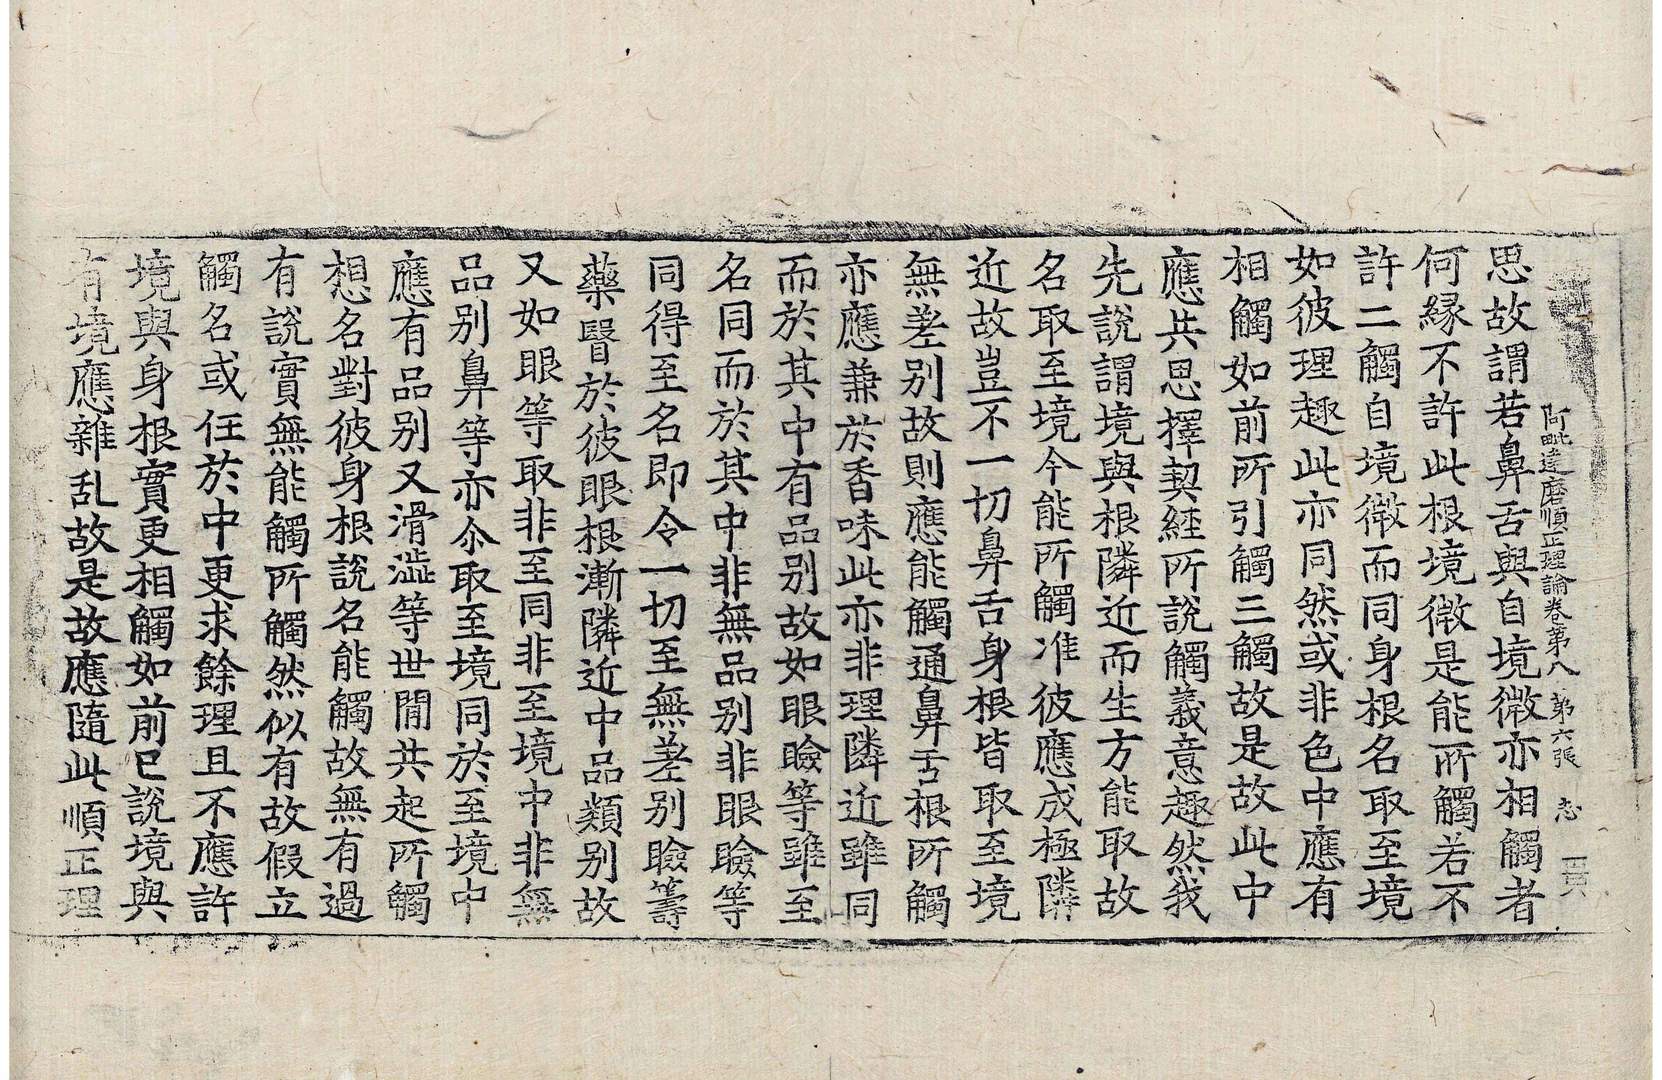 阿毗達磨順正理論卷第八 第六張 志
思故謂若鼻舌與自境微亦相觸者
何縁不許此根境微是能所觸若不
許二觸自境微而同身根名取至境
如彼理趣此亦同然或非色中應有
相觸如前所引觸三觸故是故此中
應共思擇契經所說觸義意趣然我
先說謂境與根隣近而生方能取故
名取至境今能所觸准彼應成極隣
近故豈不一切鼻舌身根皆取至境
無差别故則應能觸通鼻舌根所觸
亦應兼於香味此亦非理隣近雖同
而於其中有品别故如眼瞼等雖至
名同而於其中非無品别非眼瞼等
同得至名即令一切至無差别瞼籌
藥醫於彼眼根漸隣近中品類别故
又如眼等取非至同非至境中非無
品别鼻等亦尒取至境同於至境中
應有品别又滑澁等世間共起所觸
想名對彼身根說名能觸故無有過
有說實無能觸所觸然似有故假立
觸名或任於中更求餘理且不應許
境與身根實更相觸如前已說境與
有境應雜乱故是故應隨此順正理